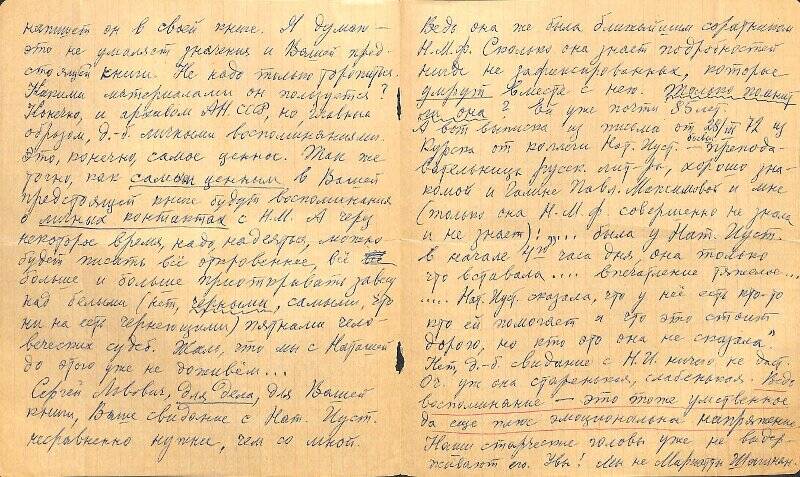 напишет он в своей книге. Я думаю –
это не умаляет значения и Вашей пред-
стоящей книги. Не надо только торопиться.
Какими материалами он пользуется?
Конечно, и архивом АН СССР, но, главным
образом, д.-б. личными воспоминаниями.
Это, конечно, самое ценное. Так же
точно, как самым ценным в Вашей
предстоящей книге будут воспоминания
о личных контактах с Н.М. А через
некоторое время, надо надеяться, можно
будет писать всё откровеннее, всё
больше и больше приоткрывать завесу
над белыми (нет, чёрными, самыми, что
ни на есть чернеющими) пятнами чело-
веческих судеб. Жаль, что мы с Наташей
до этого уже не доживём...
Сергей Львович, для дела, для Вашей
книги, Ваше свидание с Нат. Иуст.
несравненно нужнее, чем со мной.
Ведь она же была ближайшим соратником
Н.М.Ф. Сколько она знает подробностей
нигде не зафиксированных, которые
умрут вместе с нею. Только помнит
ли она? Ей уже почти 85 лет.
А вот выписка из письма от 28/III 72 из
Курска от коллеги Нат. Иуст. – препода-
вательницы русск. лит-ры, хорошо зна-
комой и Галине Павл. Максимовой и мне
(только она Н.М.Ф. совершенно не знала
и не знает)! „... была у Нат. Иуст.
в начале 4го часа дня, она только
что вставала.... впечатление тяжелое...
.... Нат. Иуст. сказала, что у неё есть кто-то
кто ей помогает и что это стоит
дорого, но кто это она не сказала"
Нет, д.-б. свидание с Н.И. ничего не даст.
Оч. уж она старенькая, слабенькая. Ведь
воспоминание – это тоже умственное
да ещё плюс эмоциональное напряжение.
Наши старческие головы уже не выдер-
живают его. Увы! Мы не Мариэтты Шагинян.